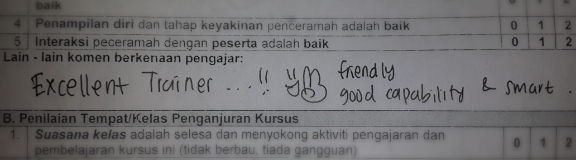 baik
4 Penampilan diri dan tahap keyakinan penceramah adalah baik 0 1 2
5 Interaksi peceramah dengan peserta adalah baik 0 1 2
Lain - lain komen berkenaan pengajar:
Excellent Trainer ...!! friendly
good capability & smart.
B. Penilaian Tempat/Kelas Penganjuran Kursus
1. Suasana kelas adalah selesa dan menyokong aktiviti pengajaran dan 0 1 2
pembelajaran kursus ini (tidak berbau, tiada gangguan)